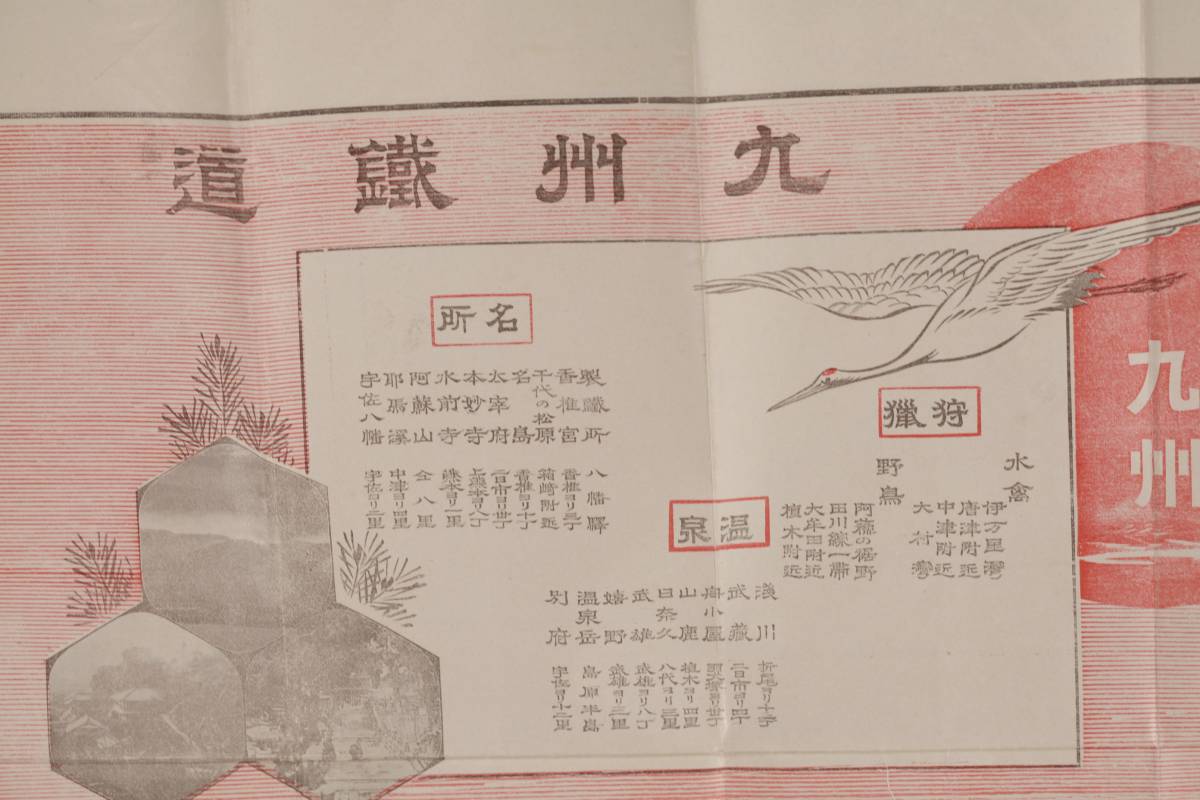 九州鐵道
九州
狩獵
水禽
伊万里灣
唐津附近
中津附近
大村灣
野鳥
阿蘇の裾野
田川線一帶
大牟田附近
植木附近
温泉
淺川 折尾ヨリ十三丁
武藏 二日市ヨリ四丁
舟小屋
山鹿 植木ヨリ四里
日奈久 八代ヨリ三里
武雄 武雄ヨリ八丁
嬉野 武雄ヨリ三里
温泉岳 島原半島
別府 宇佐ヨリ十二里
名所
製鐵所 八幡驛
香椎宮 香椎ヨリ三丁
千代の松原 箱崎附近
名島 香椎ヨリ十丁
太宰府 二日市ヨリ廿丁
本妙寺 上熊本ヨリ八丁
水前寺 熊本ヨリ一里
阿蘇山 仝八里
耶馬溪 中津ヨリ四里
宇佐八幡 宇佐ヨリ一里